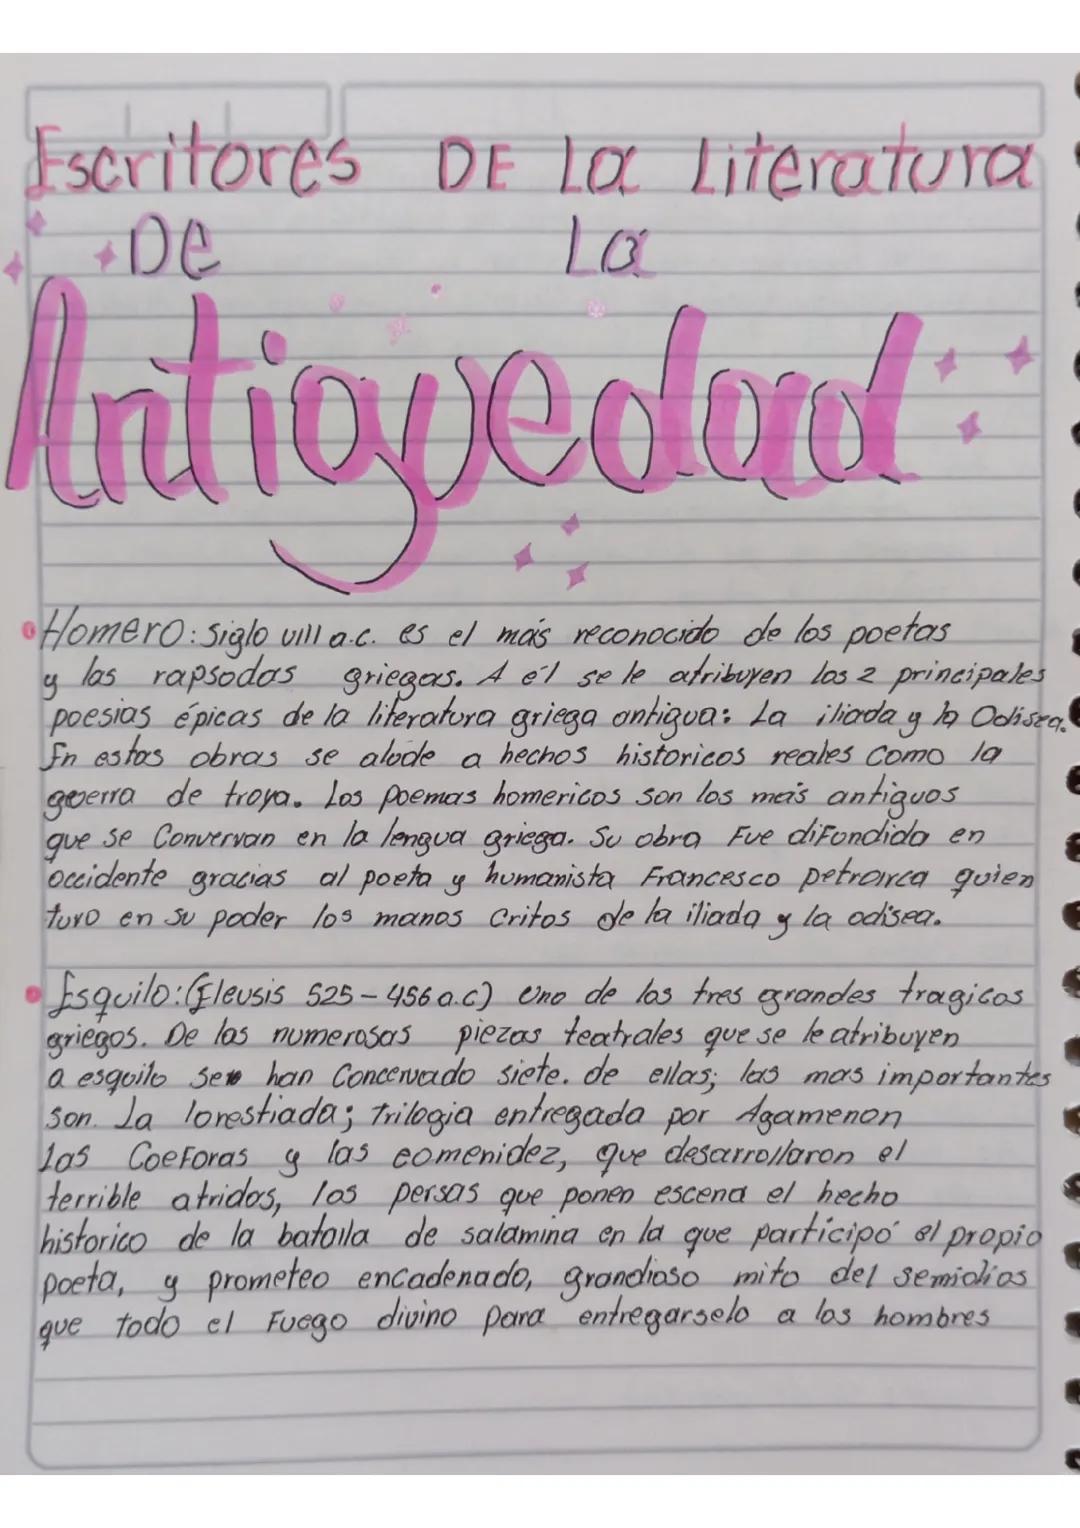 Escritores DE La Literatura
De La
Antiguedad
Homero: Siglo VIII a.c. es el más reconocido de los poetas
y las rapsodas griegas. A él se le atribuyen las 2 principales
poesias épicas de la literatura griega antigua: La iliada y la Odisea.
En estas obras se alude a hechos historicos reales Como la
guerra de troya. Los poemas homericos son los más antiguos
que se Convervan en la lengua griega. Su obra Fue diFundida en
occidente gracias al poeta y humanista Francesco petrarca quien
tuvo en su poder los manos Critos de la iliada y la odisea.
Esquilo: (Eleusis 525-456 a.c) Uno de los tres grandes tragicos
griegos. De las numerosas piezas teatrales que se le atribuyen
a esquilo se han Concervado siete. de ellas; las mas importantes
son. La lorestiada; trilogia entregada por Agamenon
Las CoeForas y las eomenidez, que desarrollaron el
terrible atridas, los persas que ponen escena el hecho
historico de la batalla de salamina en la que participó el propio
poeta, y prometeo encadenado, grandioso mito del semidios
que todo el Fuego divino para entregarselo a los hombres